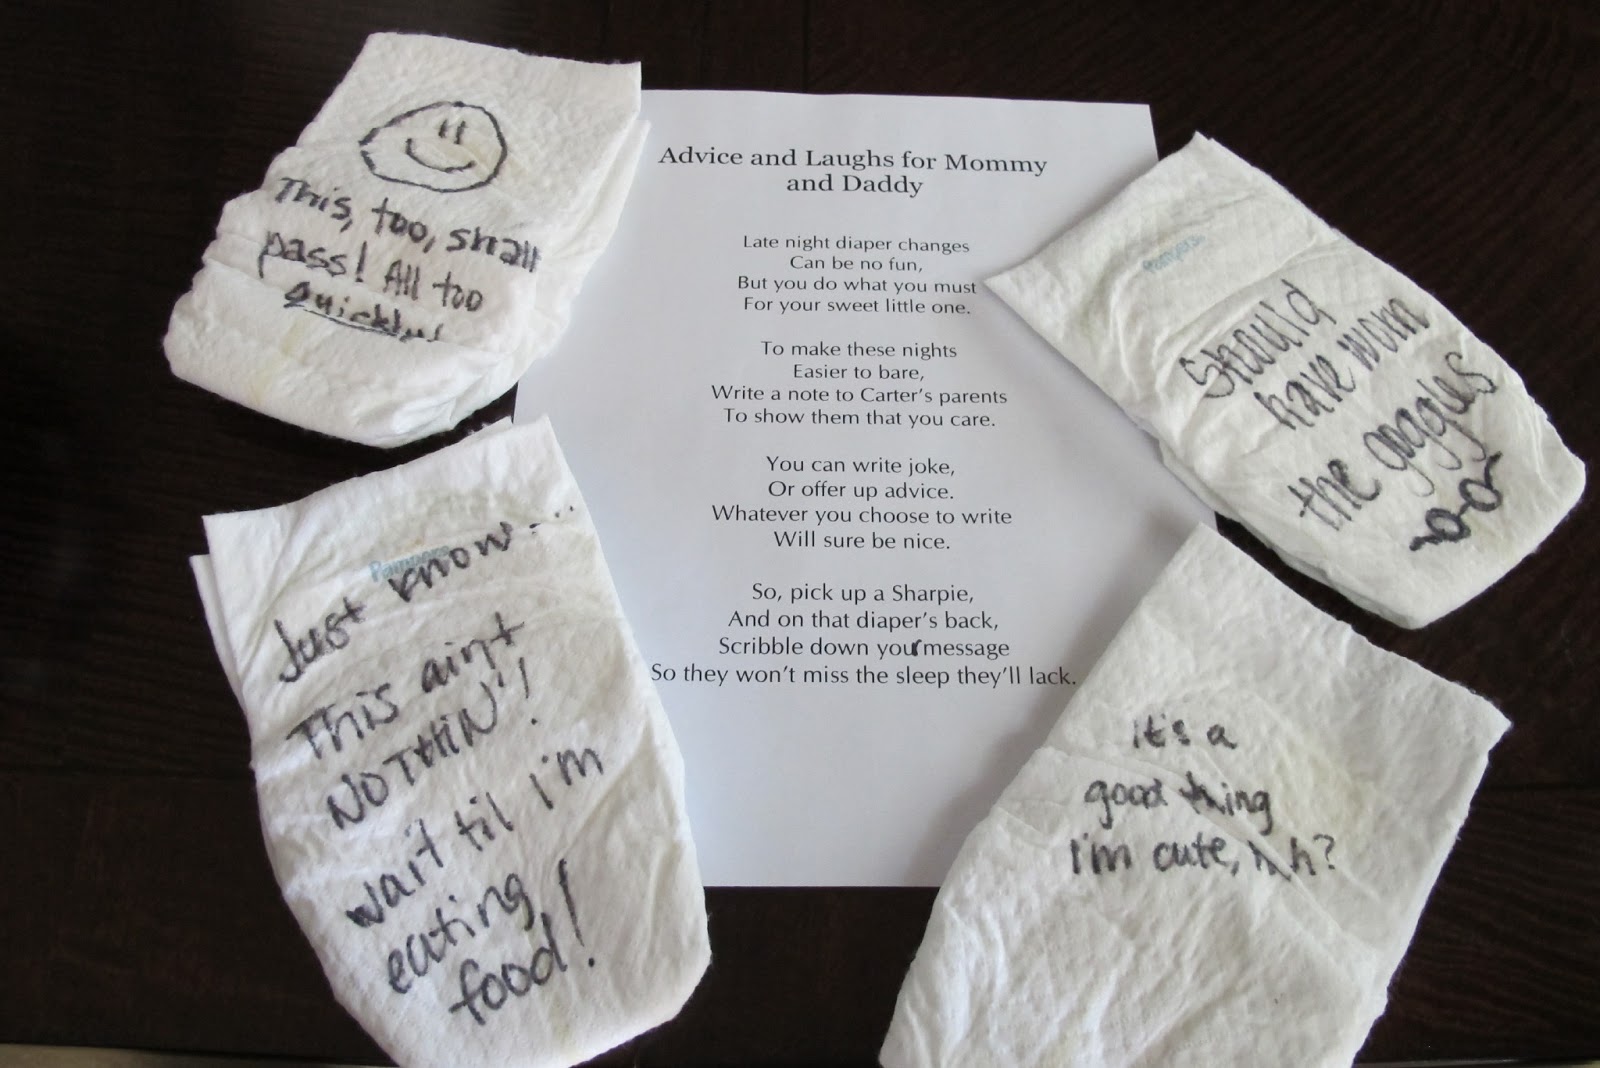 This, too, shall
pass! All too
quickly!
Advice and Laughs for Mommy
and Daddy
Late night diaper changes
Can be no fun,
But you do what you must
For your sweet little one.
To make these nights
Easier to bare,
Write a note to Carter's parents
To show them that you care.
You can write joke,
Or offer up advice.
Whatever you choose to write
Will sure be nice.
So, pick up a Sharpie,
And on that diaper's back,
Scribble down your message
So they won't miss the sleep they'll lack.
Pampers
Should
have worn
the goggles
Pampers
Just know...
This aint
NOTHIN'!
wait til i'm
eating
food!
It's a
good thing
I'm cute, huh?